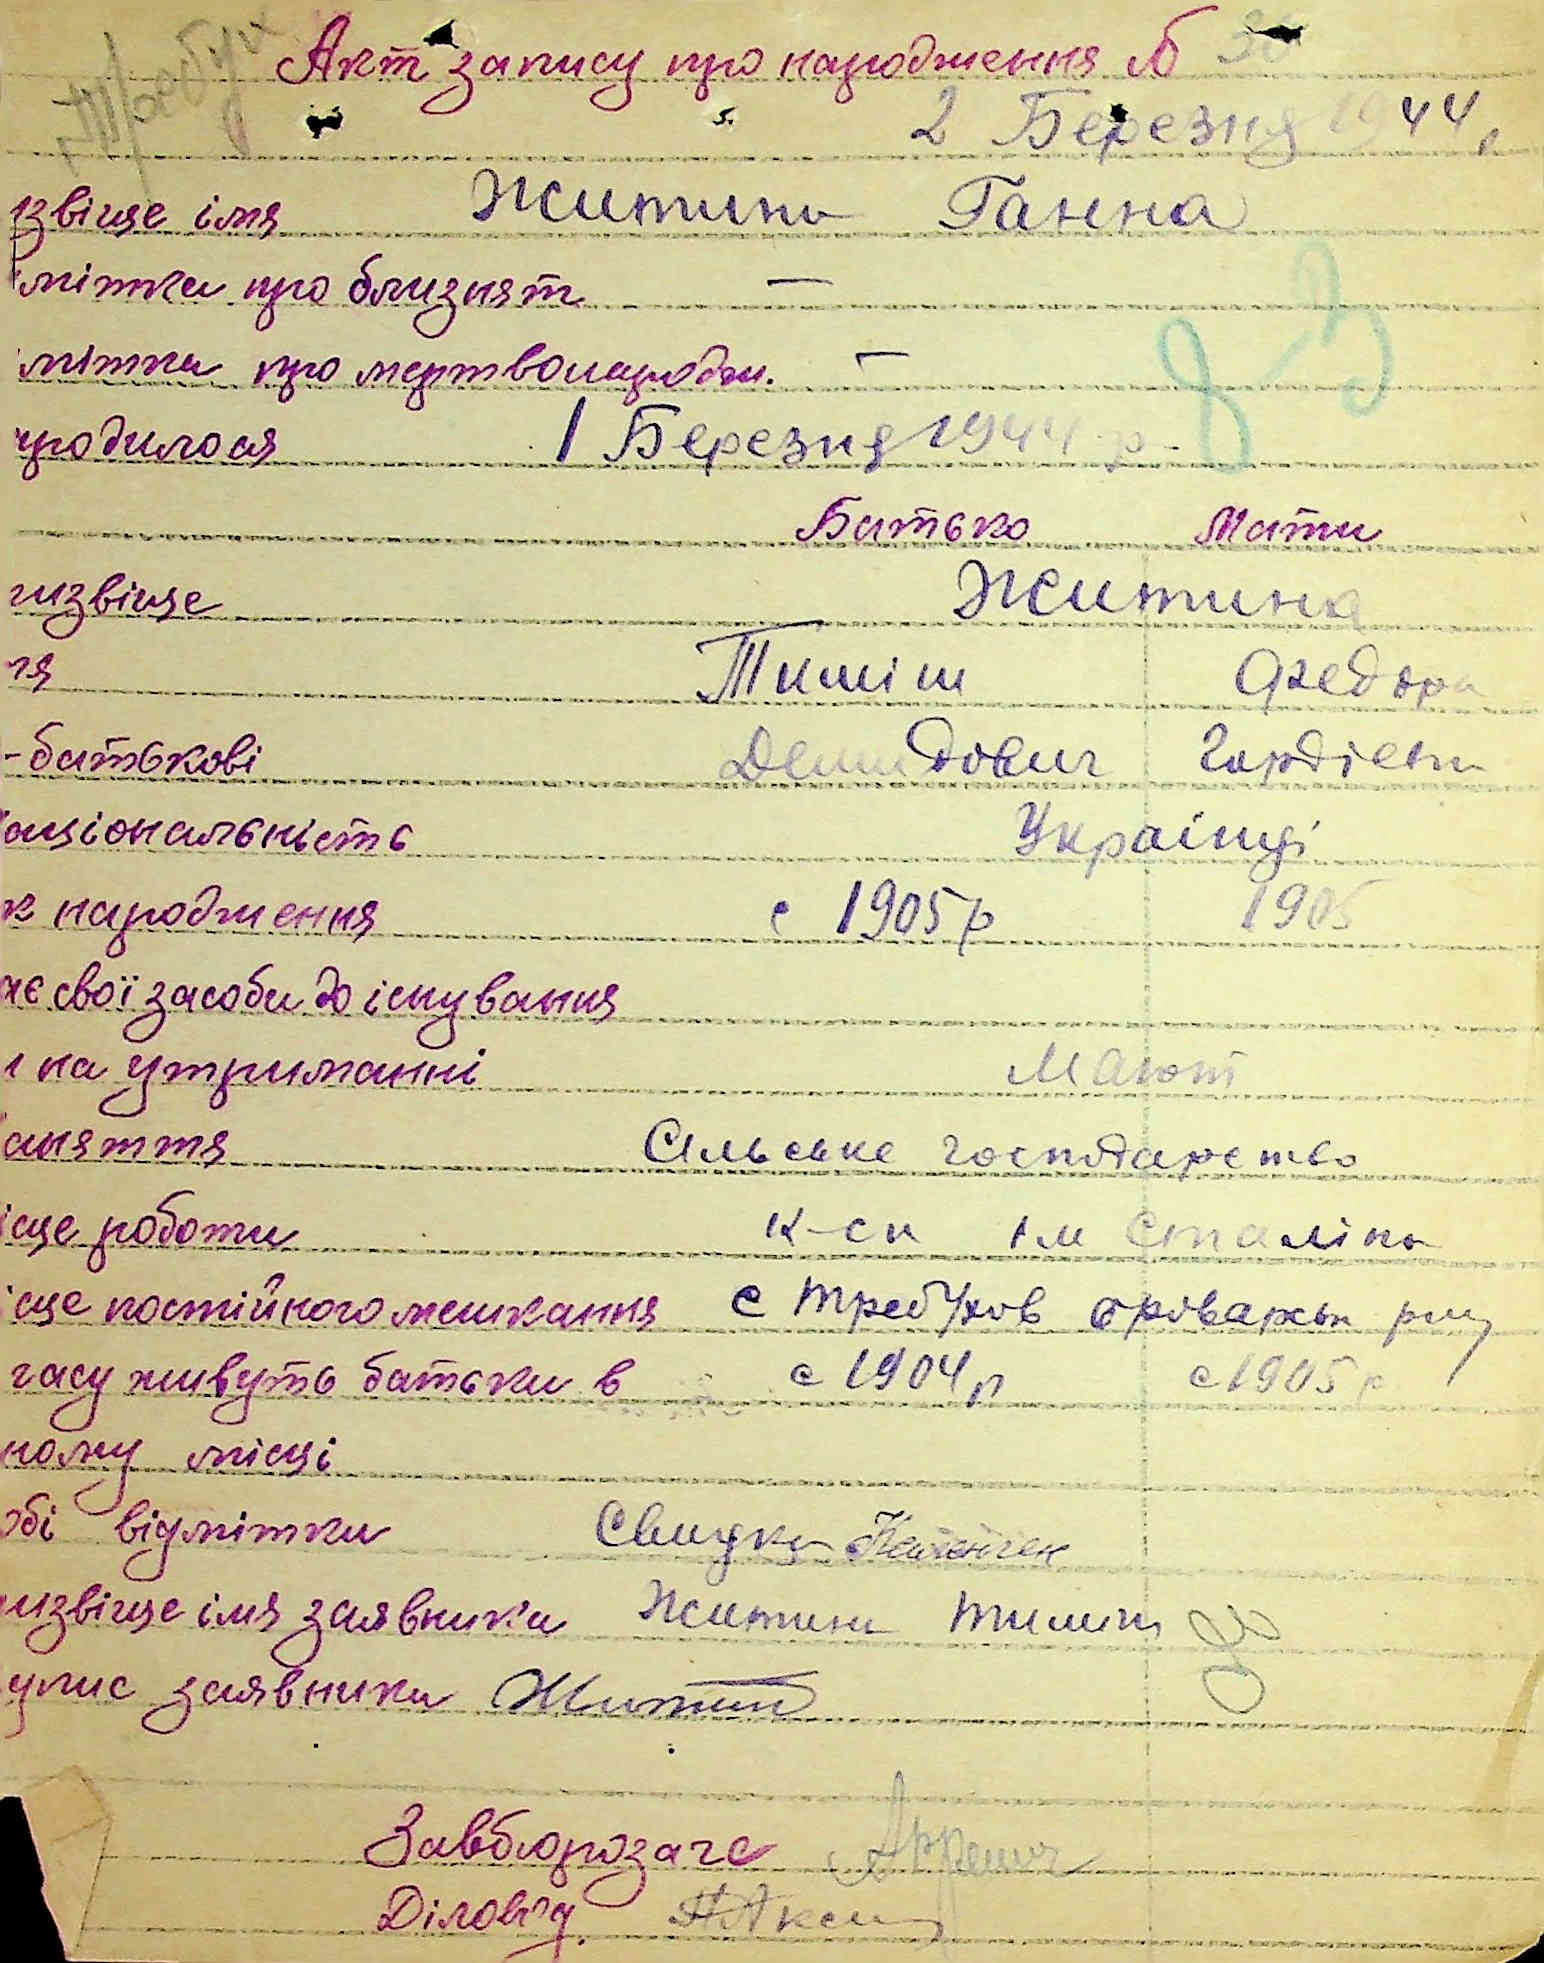 Требух
Акт запису про народження №
2 Березня 1944 р
ізвіще імя Житина Ганна
мітка про близнят —
мітка про мертвонародж. —
ародилося 1 Березня 1944 р.
Батько Мати
ізвіще Житина
мя Тиміш Федора
-батькові Демидович Гордіевн
аціональність Українці
ік народження с 1905 р 1905
ає свої засоби до існування
и на утриманні Мают
аняття Сільське господарство
ісце роботи к-сп ім Сталіна
ісце постійного мешкання с Требухов броварськ рну
часу живуть батьки в с 1904 р с 1905 р
ному місці
обі відмітки Свидки
ізвіще імя заявника Житина Тиміш
дпис заявника Житин
Завбюрозагс
Діловод.